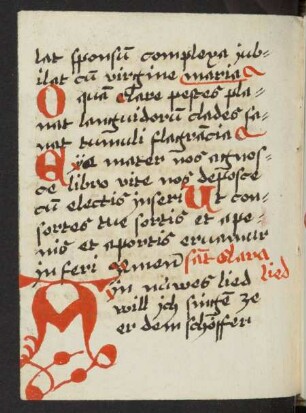 lat sponsū complexa jub-
ilat cū virgine maria
O quā clare pestes pla-
nat languidorū clades sa-
nat tumuli flagrācia
Eÿe mater nos agnos-
ce libro vite nos deposce
cū electis inseri Ut con-
sortes tue sortis et ape-
nis et aportis eruamur
inferi amen sāt clara
lied
Ain nüwes lied
will ich singē ze
er dem schöffer